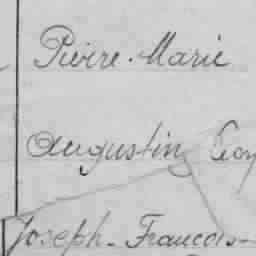 Pierre-Marie
Augustin
Joseph-François-